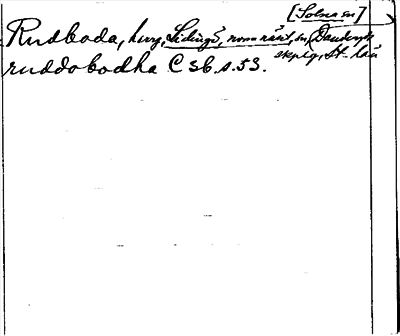 [Solna sn]
Rudboda, herrg, Lidingö, numer särsk. sn, Danderyds
skplg, St-län
ruddobodha C 36, s. 53.